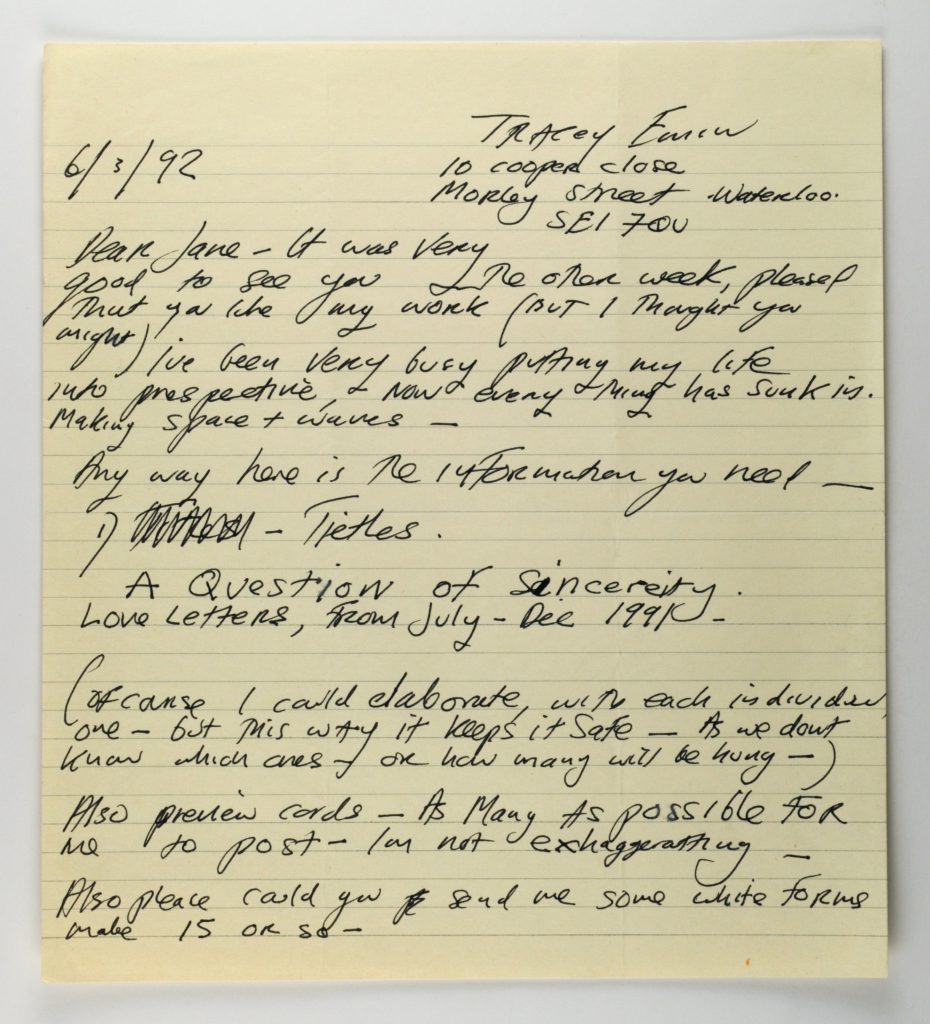 TRACEY EMIN
6/3/92
10 cooper close
Morley Street - Waterloo.
SE1 7QU
Dear Jane - It was very
good to see you the other week, pleased
that you like my work (BUT I thought you
might) I've been very busy putting my life
into prespective, + now every thing has sunk in.
Making space + waves -
Any way here is the information you need -
1) - Tietles.
A Question of Sincereity.
Love Letters, From July - Dec 1991 -
(of course I could elaborate, with each individual
one - but this way it keeps it safe - As we dont
know which ones - or how many will be hung -)
Also preview cards - As Many As possible FOR
me to post - I'm not exhaggeratting -
Also pleace could you send me some white Forms
make 15 or so -